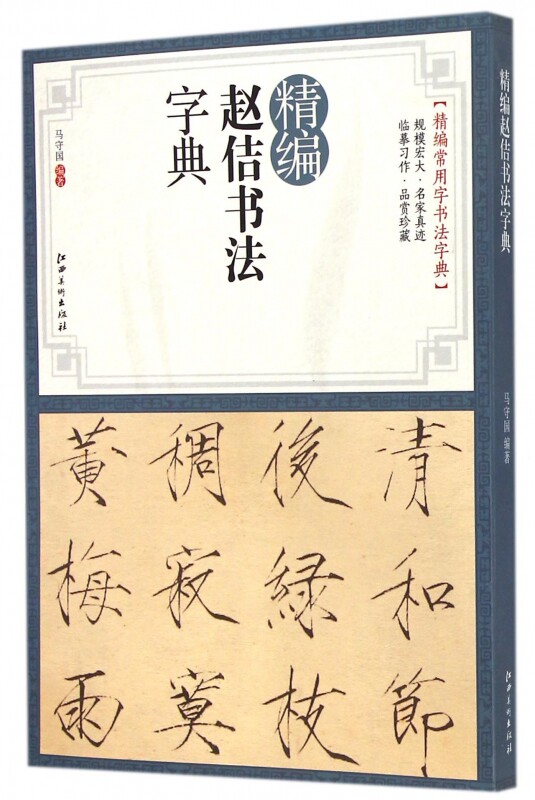 【精编常用字书法字典】
规模宏大·名家真迹
临摹习作·品赏珍藏
精编
赵佶书法
字典
马守国 编著
江西美术出版社
清和節
後綠枝
稠寂寞
黄梅雨
精编赵佶书法字典
马守国 编著
江西美术出版社